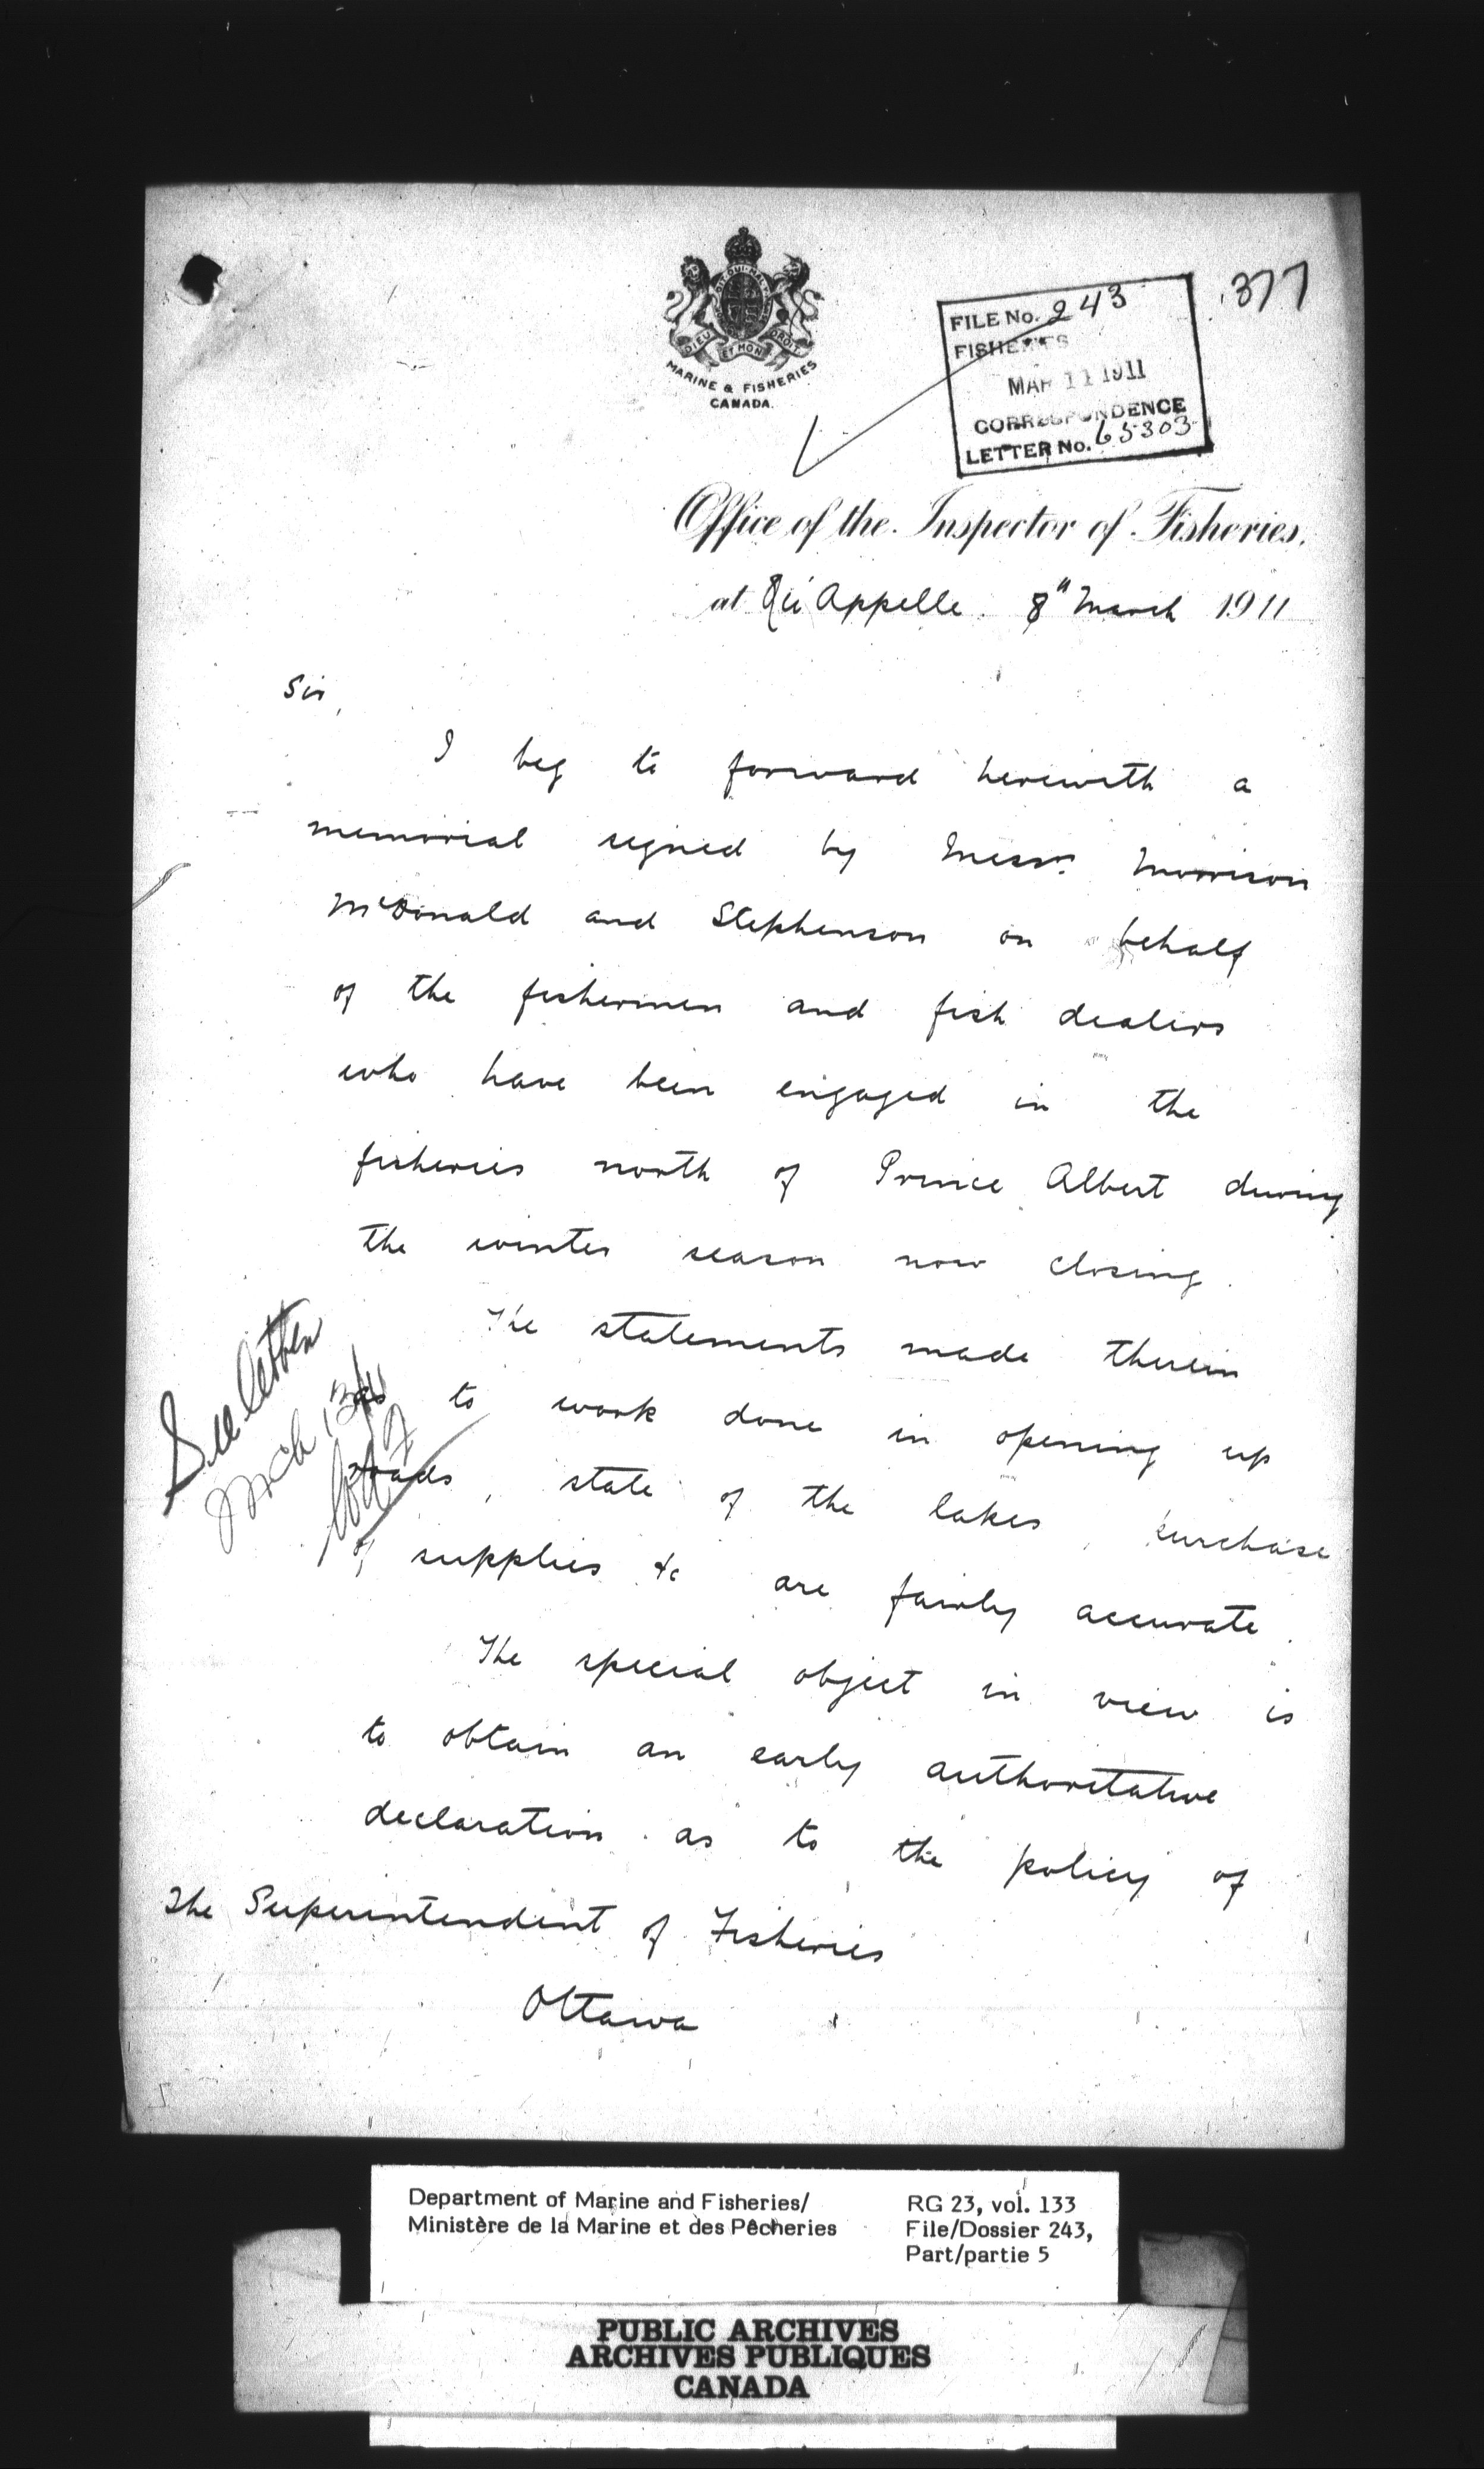 377
FILE No. 243
FISHERIES
MAR 11 1911
CORRESPONDENCE
LETTER No. 65303
DIEU ET MON DROIT
MARINE & FISHERIES
CANADA.
Office of the Inspector of Fisheries.
at Qu'Appelle. 8" March 1911
Sir,
I beg to forward herewith a
memorial signed by Messrs. Morrison
McDonald and Stephenson on behalf
of the fishermen and fish dealers
who have been engaged in the
fisheries north of Prince Albert during
the winter season now closing.
The statements made therein
as to work done in opening up
roads, state of the lakes, purchase
of supplies &c are fairly accurate.
The special object in view is
to obtain an early authoritative
declaration as to the policy of
See letter
Mch 13/11
The Superintendent of Fisheries
Ottawa
Department of Marine and Fisheries/
Ministère de la Marine et des Pêcheries
RG 23, vol. 133
File/Dossier 243,
Part/partie 5
PUBLIC ARCHIVES
ARCHIVES PUBLIQUES
CANADA